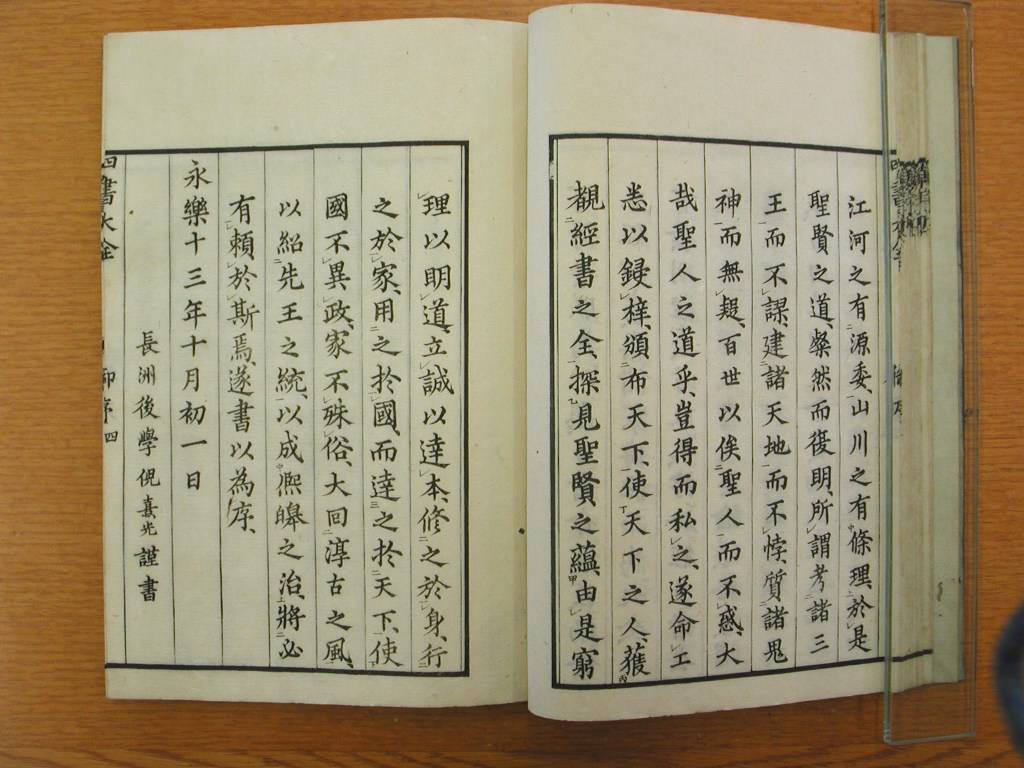 江河之有源委、山川之有條理、於是
聖賢之道、粲然而復明、所謂考諸三
王而不謬、建諸天地而不悖、質諸鬼
神而無疑、百世以俟聖人而不惑、大
哉聖人之道乎、豈得而私之、遂命工
悉以鋟梓、頒布天下、使天下之人、獲
覩經書之全、探見聖賢之蘊、由是窮
理以明道、立誠以達本、修之於身、行
之於家、用之於國、而達之於天下、使
國不異政、家不殊俗、大回淳古之風、
以紹先王之統、以成熈皞之治、將必
有賴於斯焉、遂書以為序、
永樂十三年十月初一日
長洲後學倪熹光謹書
四書大全
御序
四